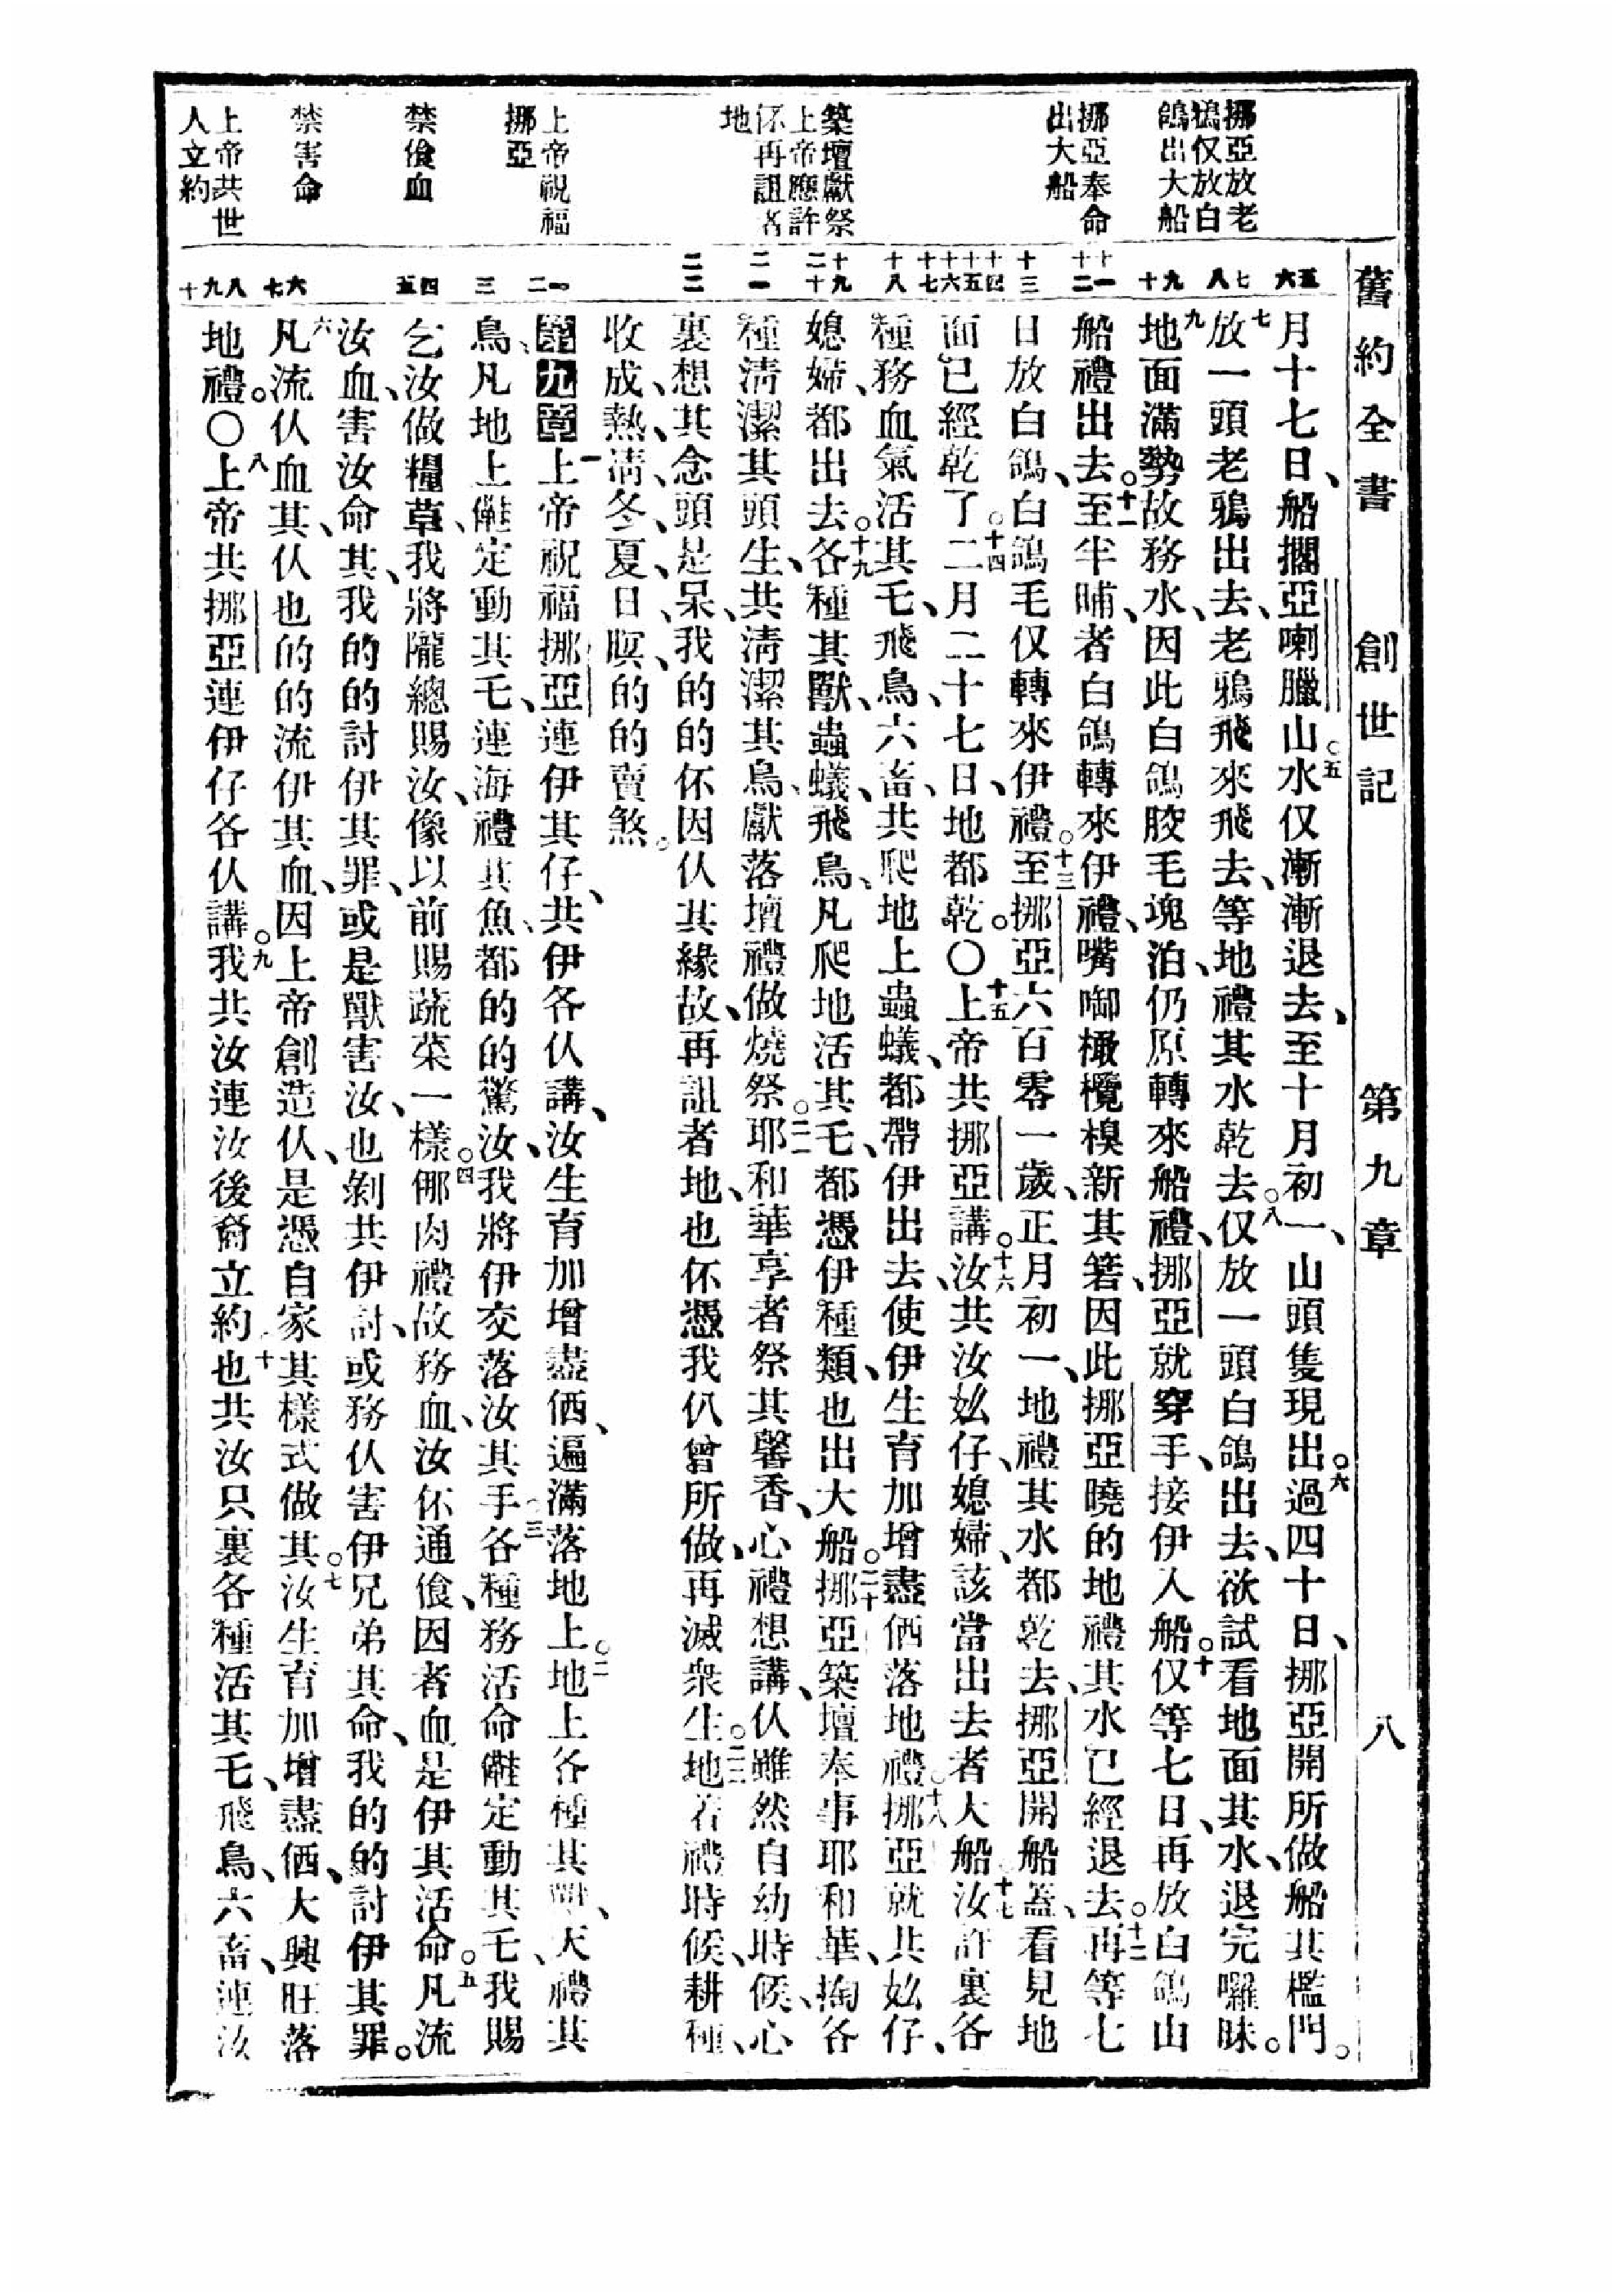 舊約全書 創世記 第九章 八
挪亞放老
鴉仅放白
鴿出大船
挪亞奉命
出大船
築壇獻祭
上帝應許
伓再詛者
地
上帝祝福
挪亞
禁傖血
禁害命
上帝共世
人立約
五 六 七 八 九 十 十一 十二 十三 十四 十五 十六 十七 十八 十九 二十 二一 二二 一 二 三 四 五 六 七 八 九 十
月十七日、船擱亞喇臘山。五水仅漸漸退去、至十月初一、山頭隻現出。六過四十日、挪亞開所做船其檻門。
七放一頭老鴉出去、老鴉飛來飛去、等地禮其水乾去。八仅放一頭白鴿出去、欲試看地面其水、退完囉昧。
九地面滿勢故務水、因此白鴿骹毛塊泊、仍原轉來船禮、挪亞就穿手、接伊入船。十仅等七日、再放白鴿山
船禮出去。十一至半晡、者白鴿轉來伊禮、嘴啣橄欖樹新其箬、因此挪亞曉的地禮其水、已經退去。十二再等七
日放白鴿、白鴿毛仅轉來伊禮。十三至挪亞六百零一歲、正月初一、地禮其水都乾去、挪亞開船蓋、看見地
面已經乾了。十四二月二十七日、地都乾。〇十五上帝共挪亞講。十六汝共汝妣仔、媳婦、該當出去者大船。十七汝許裏各
種務血氣活其乇、飛鳥、六畜、共爬地上蟲蟻、都帶伊出去、使伊生育加增盡𠌥落地禮。十八挪亞就共妣仔、
媳婦、都出去。十九各種其獸、蟲蟻、飛鳥、凡爬地活其乇、都憑伊種類、也出大船。二十挪亞築壇奉事耶和華、掏各
種淸潔其頭生、共淸潔其鳥、獻落壇禮、做燒祭。二一耶和華享者祭其馨香、心禮想講、仈雖然自幼時候、心
裏想其念頭、是呆、我的的伓因仈其緣故、再詛者地、也伓憑我仈曾所做、再滅衆生。二二地若禮時候、耕種、
收成、熱、淸、冬、夏、日、暝、的的賣煞。
第九章 一上帝祝福挪亞、連伊其仔、共伊各仈講、汝生育加增盡𠌥、遍滿落地上。二地上各種其獸、天禮其
鳥、凡地上𠆧定動其乇、連海禮其魚、都的的驚汝、我將伊交落汝其手。三各種務活命𠆧定動其乇、我賜
乞汝做糧草、我將隴總賜汝、像以前賜蔬菜一樣。四倻肉禮故務血、汝伓通傖、因者血是伊其活命。五凡流
汝血、害汝命其、我的的討伊其罪、或是獸害汝、也剝共伊討、或務仈害伊兄弟其命、我的的討伊其罪。
六凡流仈血其、仈也的的流伊其血、因上帝創造仈、是憑自家其樣式做其。七汝生育加增盡𠌥、大興旺落
地禮。〇八上帝共挪亞連伊仔各仈講。九我共汝連汝後裔立約。十也共汝只裏各種活其乇、飛鳥、六畜、連汝